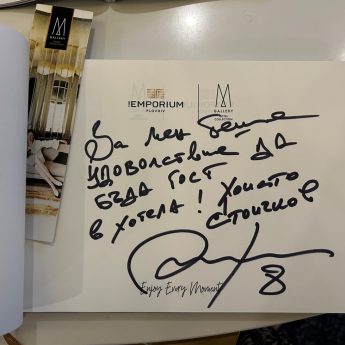 M
GALLERY
!EMPORIUM
PLOVDIV
M
GALLERY
HOTEL
COLLECTION
За мен беше
удоволствие да
бъда гост
в хотела! Христо
Стоичков
8
Enjoy Every Moment